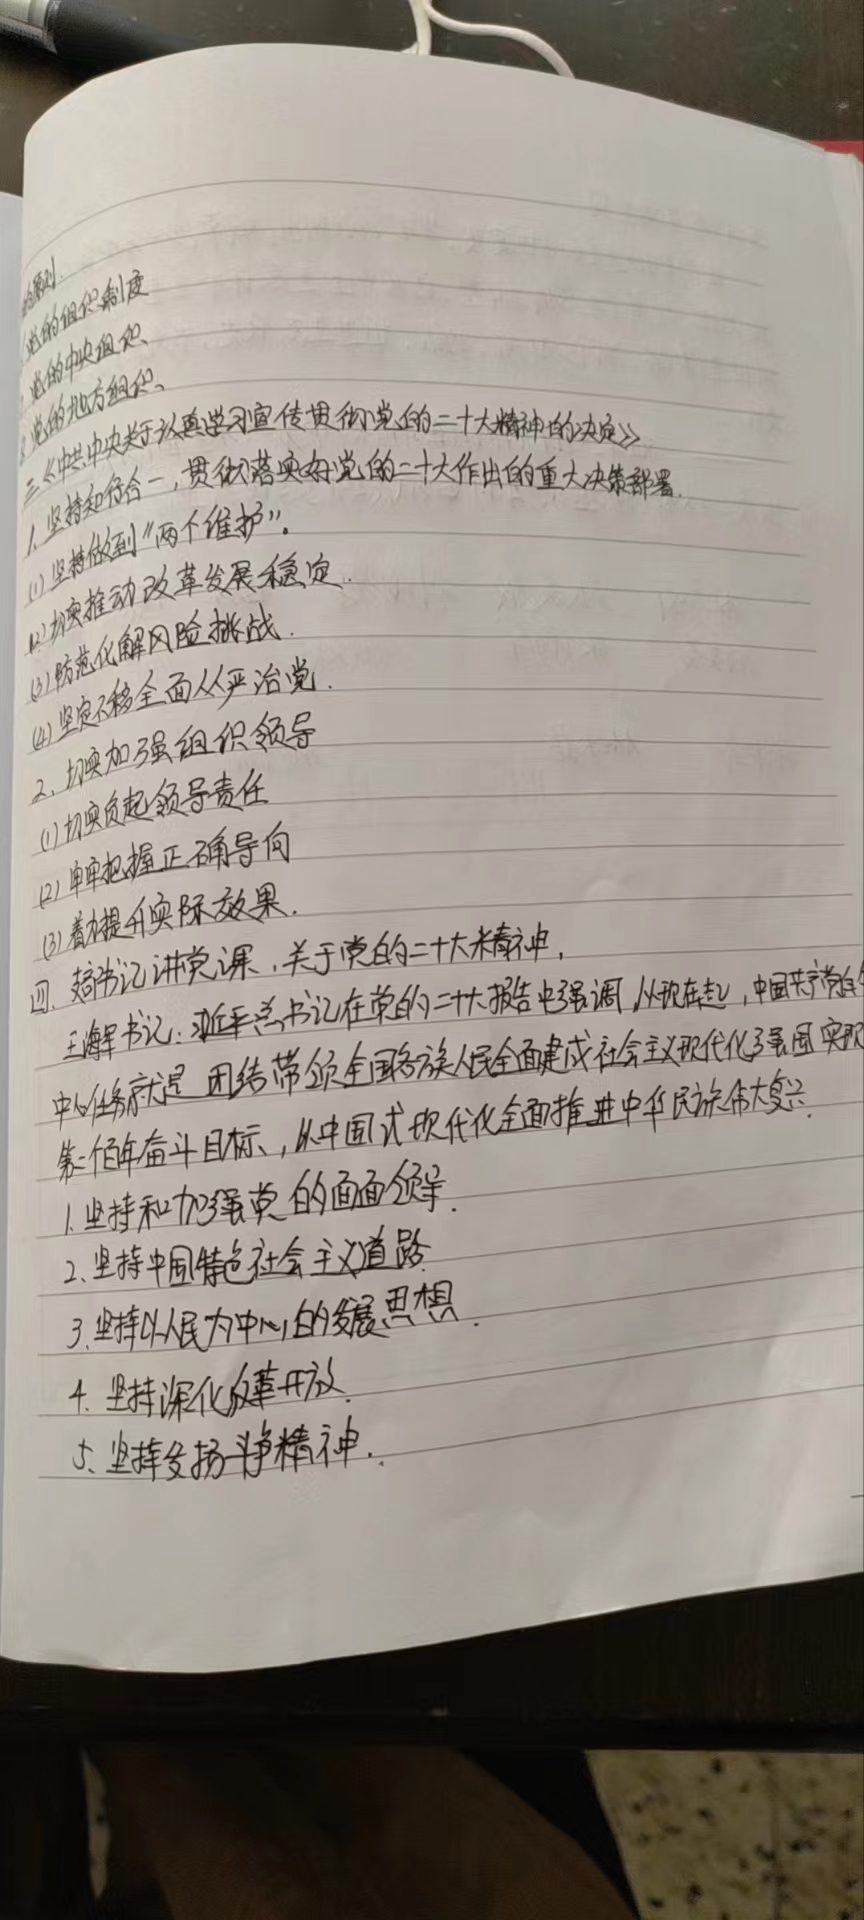 的原则.
1、党的组织制度
2、党的中央组织、
3、党的地方组织、
三、《中共中央关于认真学习宣传贯彻党的二十大精神的决定》
1、坚持知行合一，贯彻落实好党的二十大作出的重大决策部署.
(1)坚持做到“两个维护”。
(2)切实推动改革发展稳定.
(3)防范化解风险挑战.
(4)坚定不移全面从严治党.
2、切实加强组织领导
(1)切实负起领导责任
(2)牢牢把握正确导向
(3)着力提升实际效果.
四、支部书记讲党课，关于党的二十大精神，
王海军书记：习近平总书记在党的二十大报告中强调，从现在起，中国共产党的
中心任务就是 团结带领全国各族人民全面建成社会主义现代化强国 实现
第二个百年奋斗目标、，以中国式现代化全面推进中华民族伟大复兴.
1.坚持和加强党的面面领导.
2、坚持中国特色社会主义道路.
3.坚持以人民为中心的发展思想.
4.坚持深化改革开放.
5、坚持发扬斗争精神.